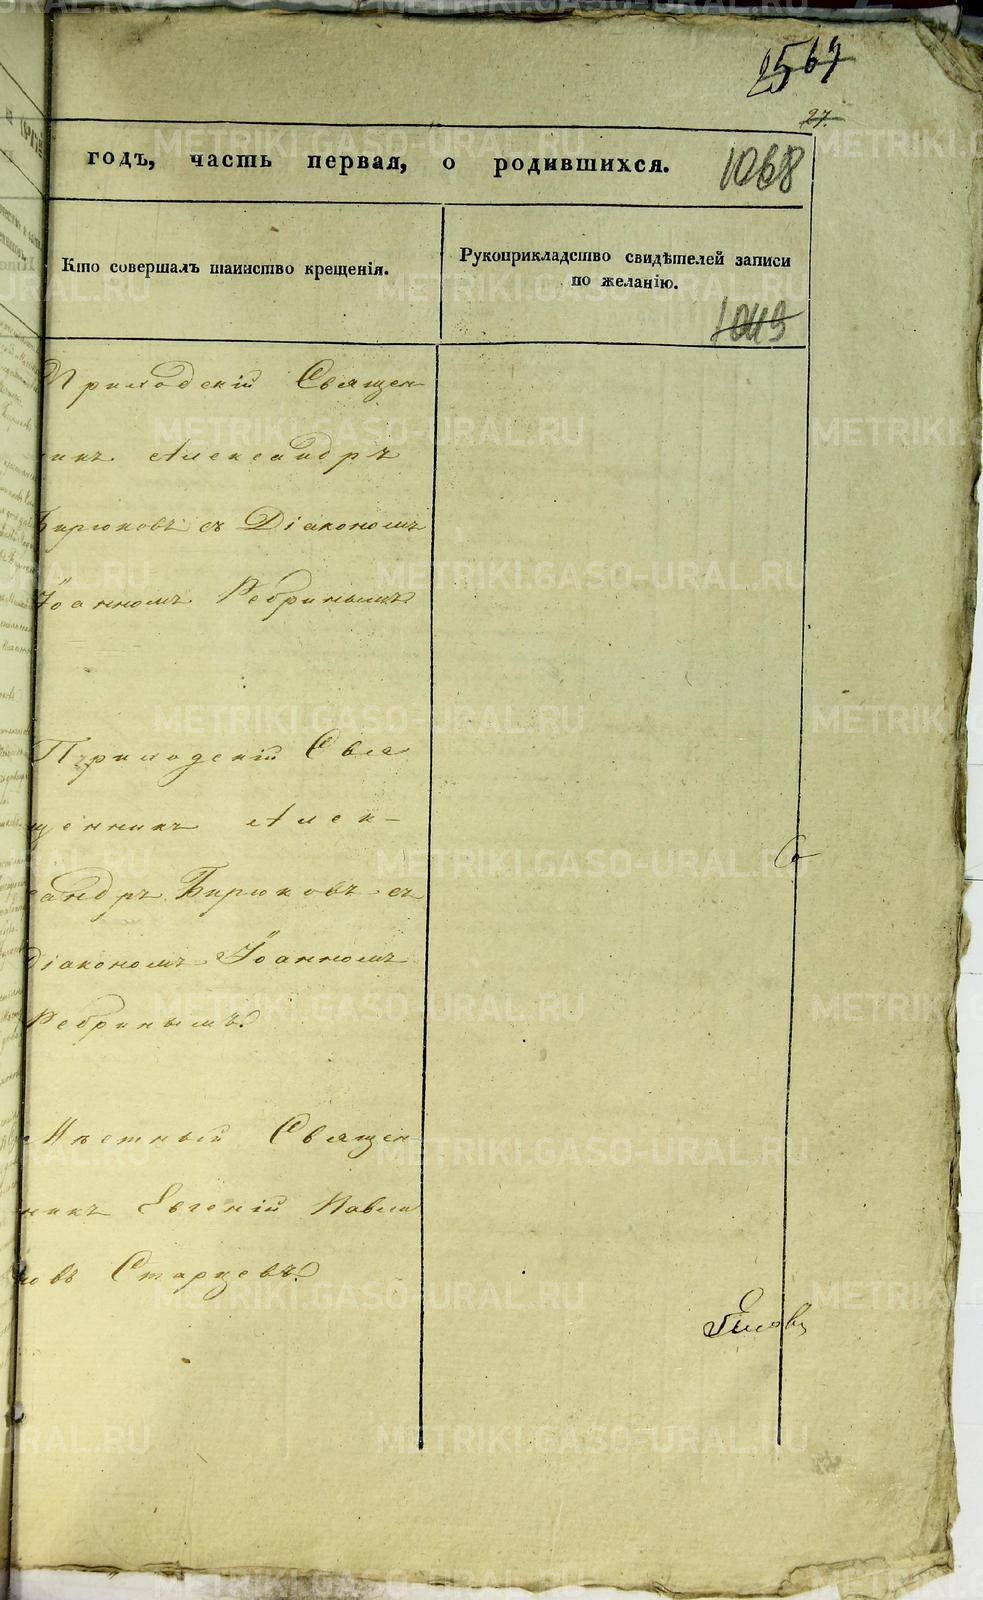 2567
27.
годъ, часть первая, о родившихся.
1068
Кто совершалъ таинство крещенія.
Рукоприкладство свидѣтелей записи
по желанію.
1049
Приходскій Священ
никъ Александръ
Бирюковъ съ Діакономъ
Іоанномъ Ребринымъ.
Приходскій Свя
щенникъ Алек-
сандръ Бирюковъ съ
діакономъ Іоанномъ
Ребринымъ.
Мѣстный Священ
никъ Евгеній Павли
новъ Старцевъ.